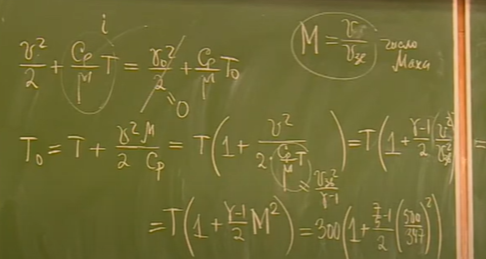 i
v²/2 + Cp/μ T = v₀²/2 + Cp/μ T₀
= 0
M = v/vзв число Маха
T₀ = T + v²μ/2Cp = T(1 + v²/(2·Cp/μ T)) = T(1 + γ-1/2 v²/vзв²) =
= vзв²/γ-1
= T(1 + γ-1/2 M²) = 300(1 + (7/5-1)/2 (500/347)²)